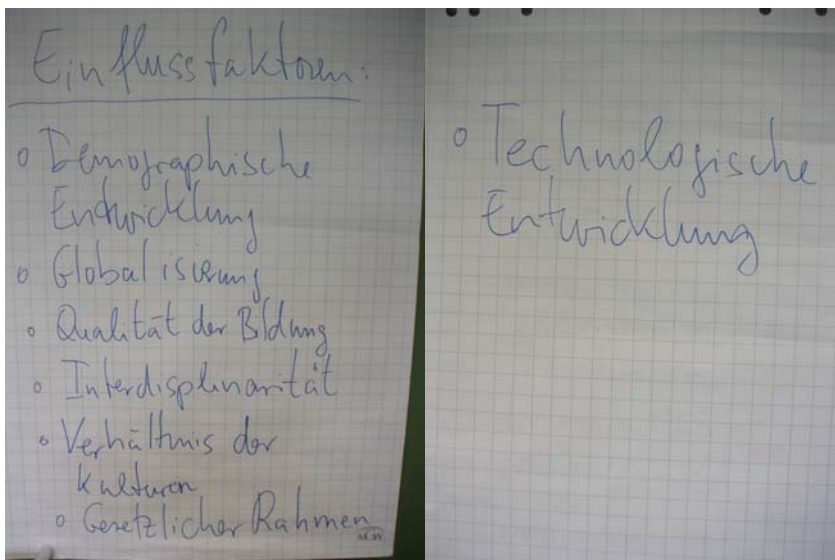 Einflussfaktoren:
o Demographische
Entwicklung
o Globalisierung
o Qualität der Bildung
o Interdisplinarität
o Verhältnis der
Kulturen
o Gesetzlicher Rahmen
o Technologische
Entwicklung